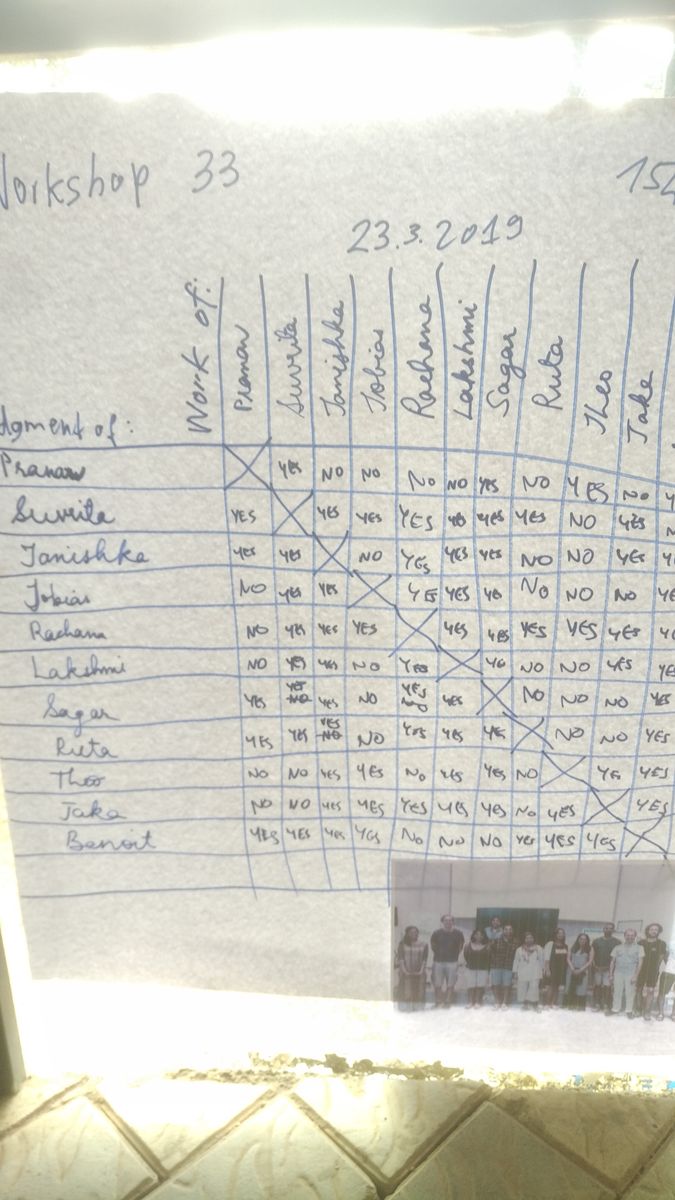 Workshop 33 154
23.3.2019
Judgment of: Work of: Pranav Suvrita Tanishka Tobias Rachana Lakshmi Sagar Ruta Theo Jaka
Pranav YES NO NO NO NO YES NO YES NO
Suvrita YES YES YES YES NO YES YES NO YES
Tanishka YES YES NO YES YES YES NO NO YES
Tobias NO YES YES YES YES YES NO NO NO YE
Rachana NO YES YES YES YES YES YES YES YES
Lakshmi NO YES YES NO YES YES NO NO YES YES
Sagar YES YES NO YES NO YES YES NO NO NO YES
Ruta YES YES YES NO NO YES YES YES NO NO YES
Theo NO NO YES YES NO YES YES NO YES YES
Jaka NO NO YES YES YES YES YES NO YES YES
Benoit YES YES YES YES NO NO NO YES YES YES